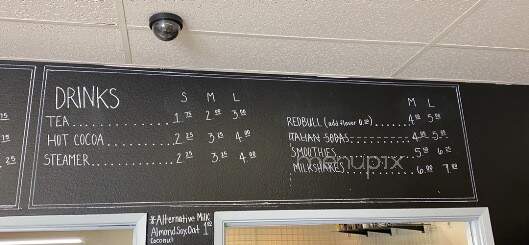 DRINKS S M L
TEA 1.75 2.00 3.00
HOT COCOA 2.25 3.25 4.00
STEAMER 2.25 3.25 4.00
M L
REDBULL (add flavor 0.50) 4.00 5.00
ITALIAN SODAS 4.00 5.00
SMOOTHIES 5.00 6.25
MILKSHAKES 6.00 7.00
menupix
75
75
25
*Alternative Milk
Almond, Soy, Oat 1.00
Coconut